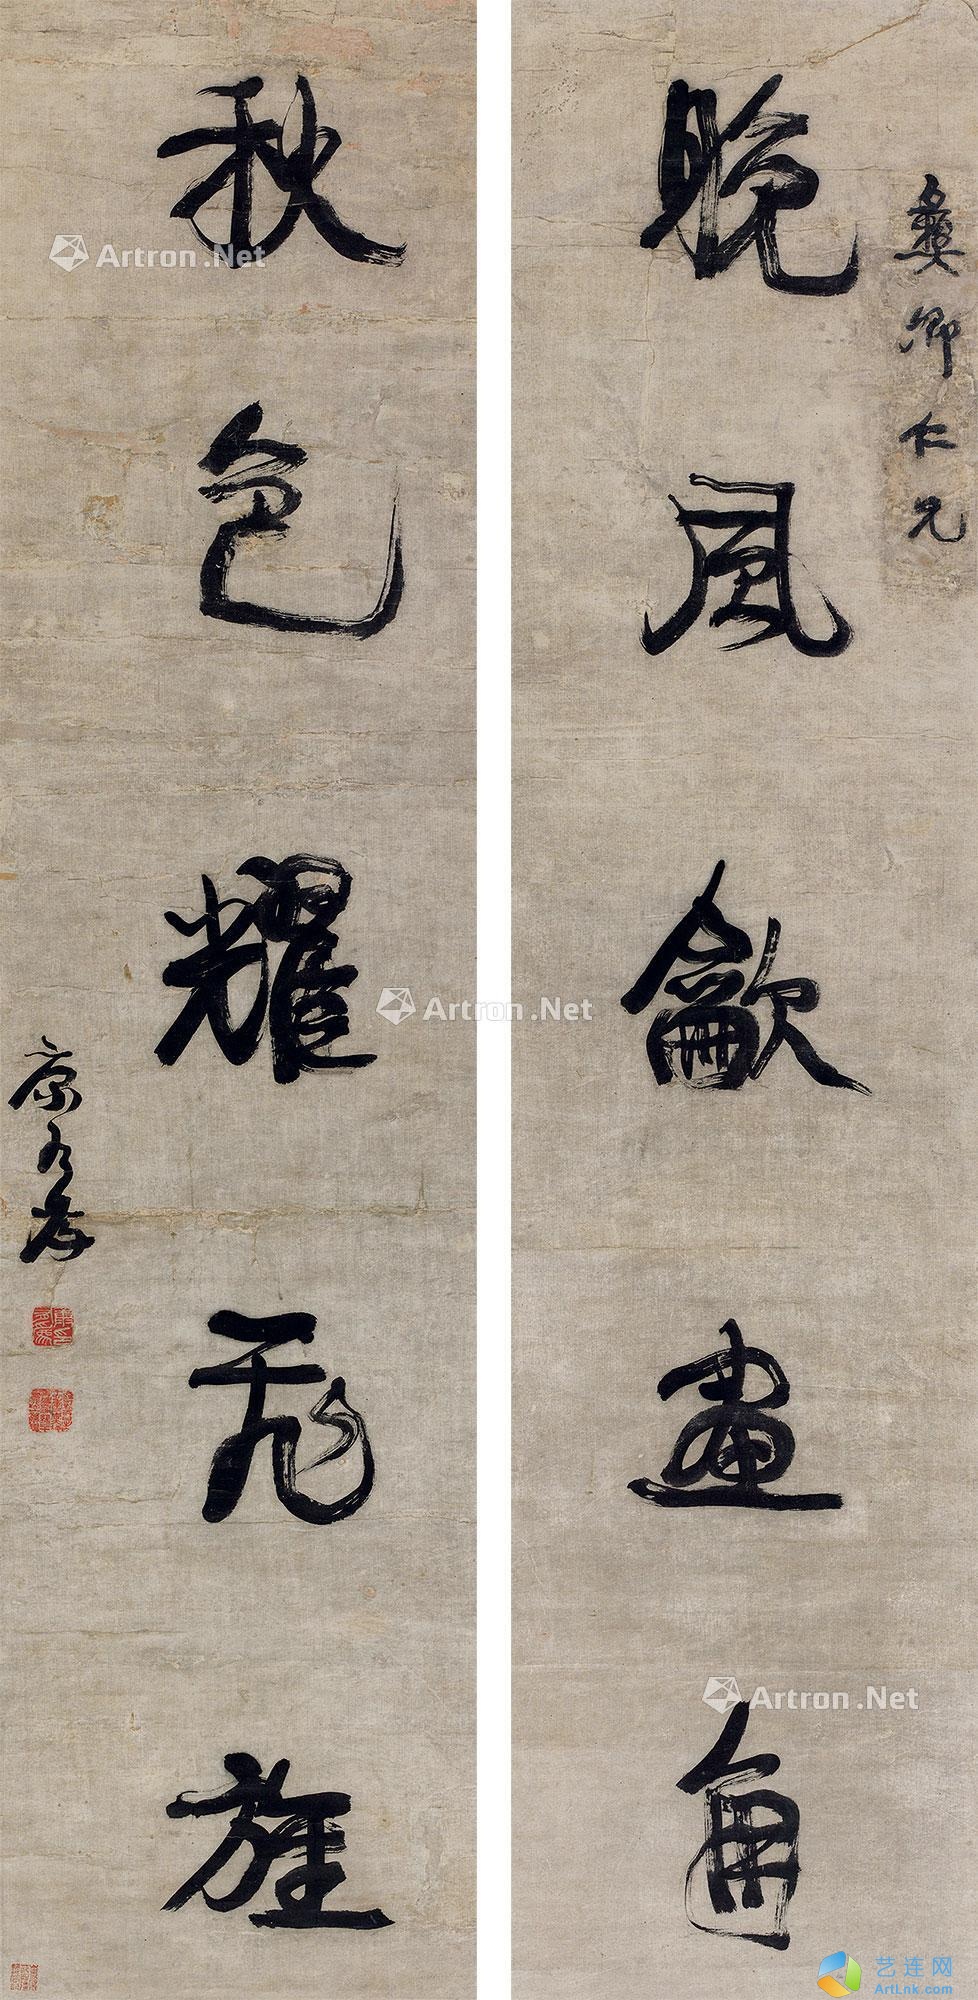 彝卿仁兄
晚風龡畫角
秋色耀飛旌
康有為
Artron.Net
Artron.Net
Artron.Net
艺连网
ArtLnk.com